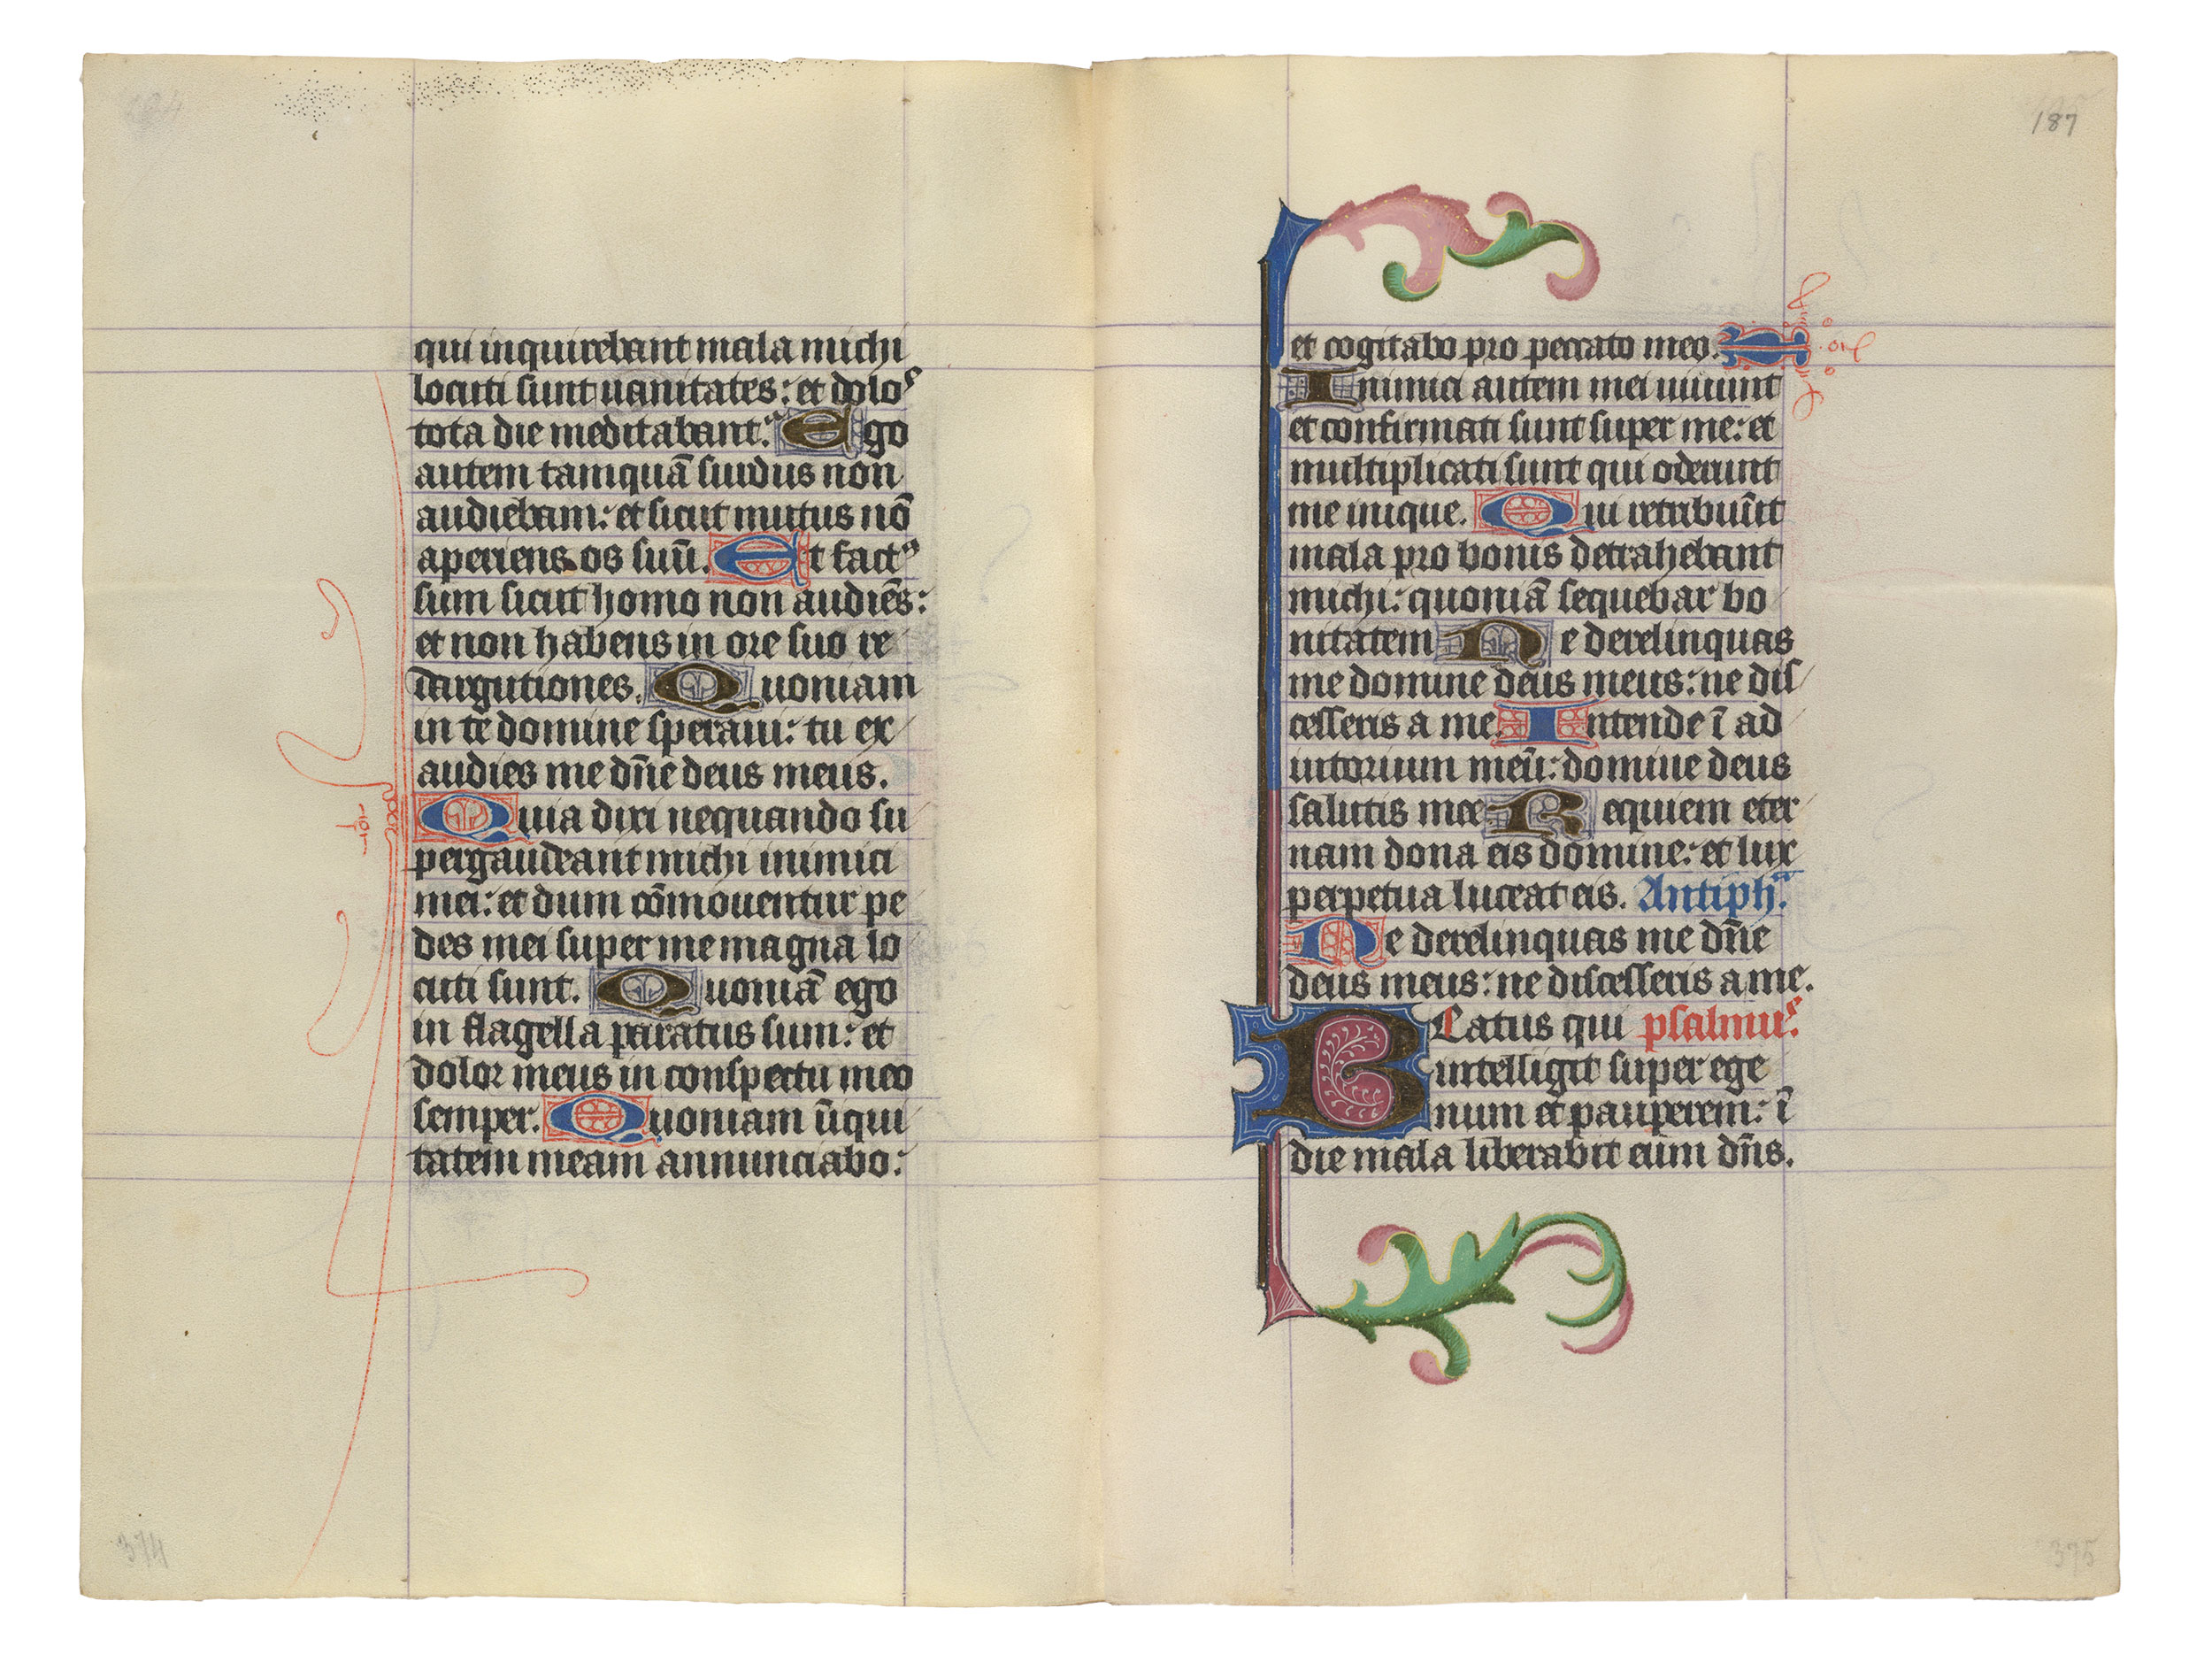 qui inquirebant mala michi
locuti sunt uanitates: et dolo⁹
tota die meditabant.ᵘ Ego
autem tamquā surdus non
audiebam: et sicut mutus nō
aperiens os suū. Et fact⁹
sum sicut homo non audiēs:
et non habens in ore suo re
dargutiones. Quoniam
in te domine speraui: tu ex
audies me dn̄e deus meus.
Quia dixi nequando su
pergaudeant michi inimici
mei: et dum cōmouentur pe
des mei super me magna lo
cuti sunt. Quoniā ego
in flagella paratus sum: et
dolor meus in conspectu meo
semper. Quoniam iniqui
tatem meam annunciabo:
374
187
et cogitabo pro peccato meo.
Inimici autem mei uiuunt
et confirmati sunt super me: et
multiplicati sunt qui oderunt
me inique. Qui retribuūt
mala pro bonis detrahebant
michi: quoniā sequebar bo
nitatem Ne derelinquas
me domine deus meus: ne dis
cesseris a me. Intende ī ad
iutorium meū: domine deus
salutis mee Requiem eter
nam dona eis domine: et lux
perpetua luceat eis. Antiphᵃ.
Ne derelinquas me dn̄e
deus meus: ne discesseris a me.
BEatus qui psalmu⁹.
intelligit super ege
num et pauperem: ī
die mala liberabit eum dn̄s.
375